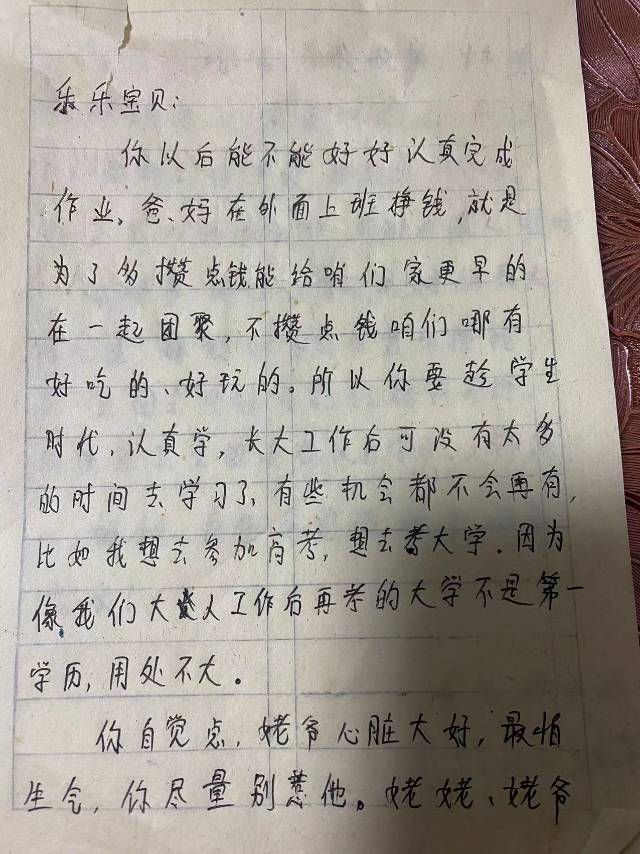 乐乐宝贝：
你以后能不能好好认真完成
作业。爸、妈在外面上班挣钱，就是
为了多攒点钱能给咱们家更早的
在一起团聚，不攒点钱咱们哪有
好吃的、好玩的。所以你要趁学生
时代，认真学，长大工作后可没有太多
的时间去学习了，有些机会都不会再有，
比如我想去参加高考，想去考大学。因为
像我们大人工作后再考的大学不是第一
学历，用处不大。
你自觉点，姥爷心脏大好，最怕
生气，你尽量别惹他。姥姥、姥爷